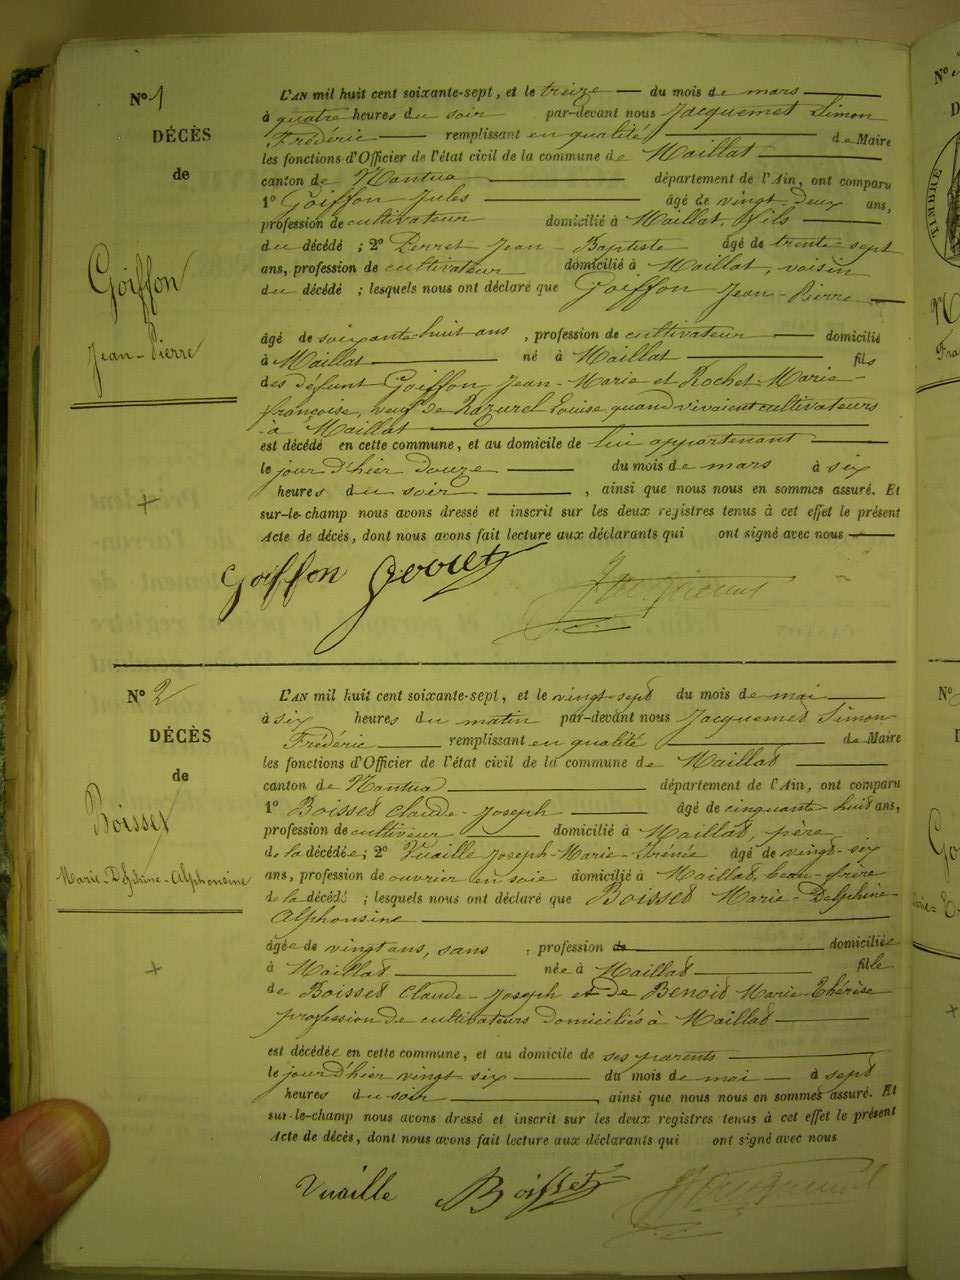 N° 1
DÉCÈS
de
Goiffon
Jean-Pierre
L'AN mil huit cent soixante-sept, et le treize du mois de mars
à quatre heures du soir par-devant nous Jacquemet Simon
Frédéric remplissant en qualité de Maire
les fonctions d'Officier de l'état civil de la commune de Maillat
canton de Nantua département de l'Ain, ont comparu
1° Goiffon Jules âgé de vingt-deux ans,
profession de cultivateur domicilié à Maillat, fils
du décédé ; 2° Perret Jean-Baptiste âgé de trente-sept
ans, profession de cultivateur domicilié à Maillat, voisin
du décédé ; lesquels nous ont déclaré que Goiffon Jean-Pierre
âgé de soixante-huit ans , profession de cultivateur domicilié
à Maillat né à Maillat fils
des défunt Goiffon, Jean-Marie et Rochet Marie-
françoise, veuf de Louise, quand vivaient cultivateurs
à Maillat
est décédé en cette commune, et au domicile de lui appartenant
le jour d'hier douze du mois de mars à six
heures du soir , ainsi que nous nous en sommes assuré. Et
sur-le-champ nous avons dressé et inscrit sur les deux registres tenus à cet effet le présent
Acte de décès, dont nous avons fait lecture aux déclarants qui ont signé avec nous
Goiffon
N° 2
DÉCÈS
de
Boisset
Marie-Delphine-Alphonsine
L'AN mil huit cent soixante-sept, et le vingt-sept du mois de mai
à six heures du matin par-devant nous Jacquemet Simon
Frédéric remplissant en qualité de Maire
les fonctions d'Officier de l'état civil de la commune de Maillat
canton de Nantua département de l'Ain, ont comparu
1° Boisset Claude-Joseph âgé de cinquante-huit ans,
profession de cultiveur domicilié à Maillat, père
de la décédée ; 2° Vuaille Joseph-Marie-Irénée âgé de vingt-six
ans, profession de ouvrier en soie domicilié à Maillat, beau-frère
de la décédé ; lesquels nous ont déclaré que Boisset Marie-Delphine-
Alphonsine
âgée de vingt ans, sans , profession de domiciliée
à Maillat née à Maillat fille
de Boisset Claude-Joseph et de Benoit Marie-Thérèse
profession de cultivateurs domiciliés à Maillat
est décédée en cette commune, et au domicile de ses parents
le jour d'hier vingt six du mois de mai à sept
heures du soir , ainsi que nous nous en sommes assuré. Et
sur-le-champ nous avons dressé et inscrit sur les deux registres tenus à cet effet le présent
Acte de décès, dont nous avons fait lecture aux déclarants qui ont signé avec nous
Vuaille Boisset
TIMBRE